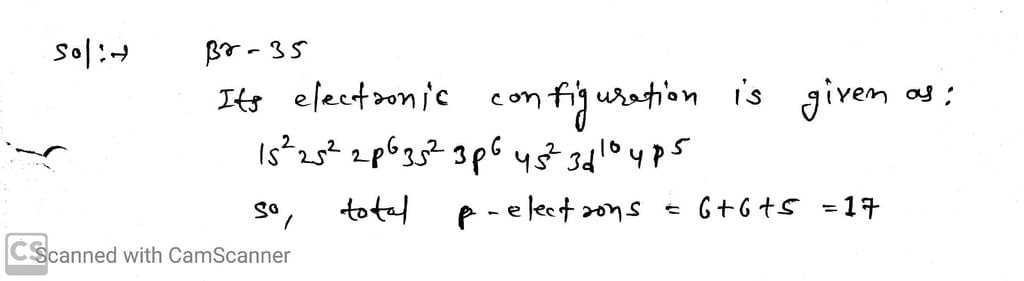 Sol:→ Br - 35
Its electronic configuration is given as :
1s² 2s² 2p⁶ 3s² 3p⁶ 4s² 3d¹⁰ 4p⁵
so, total p-electrons = 6+6+5 = 17
CS Scanned with CamScanner